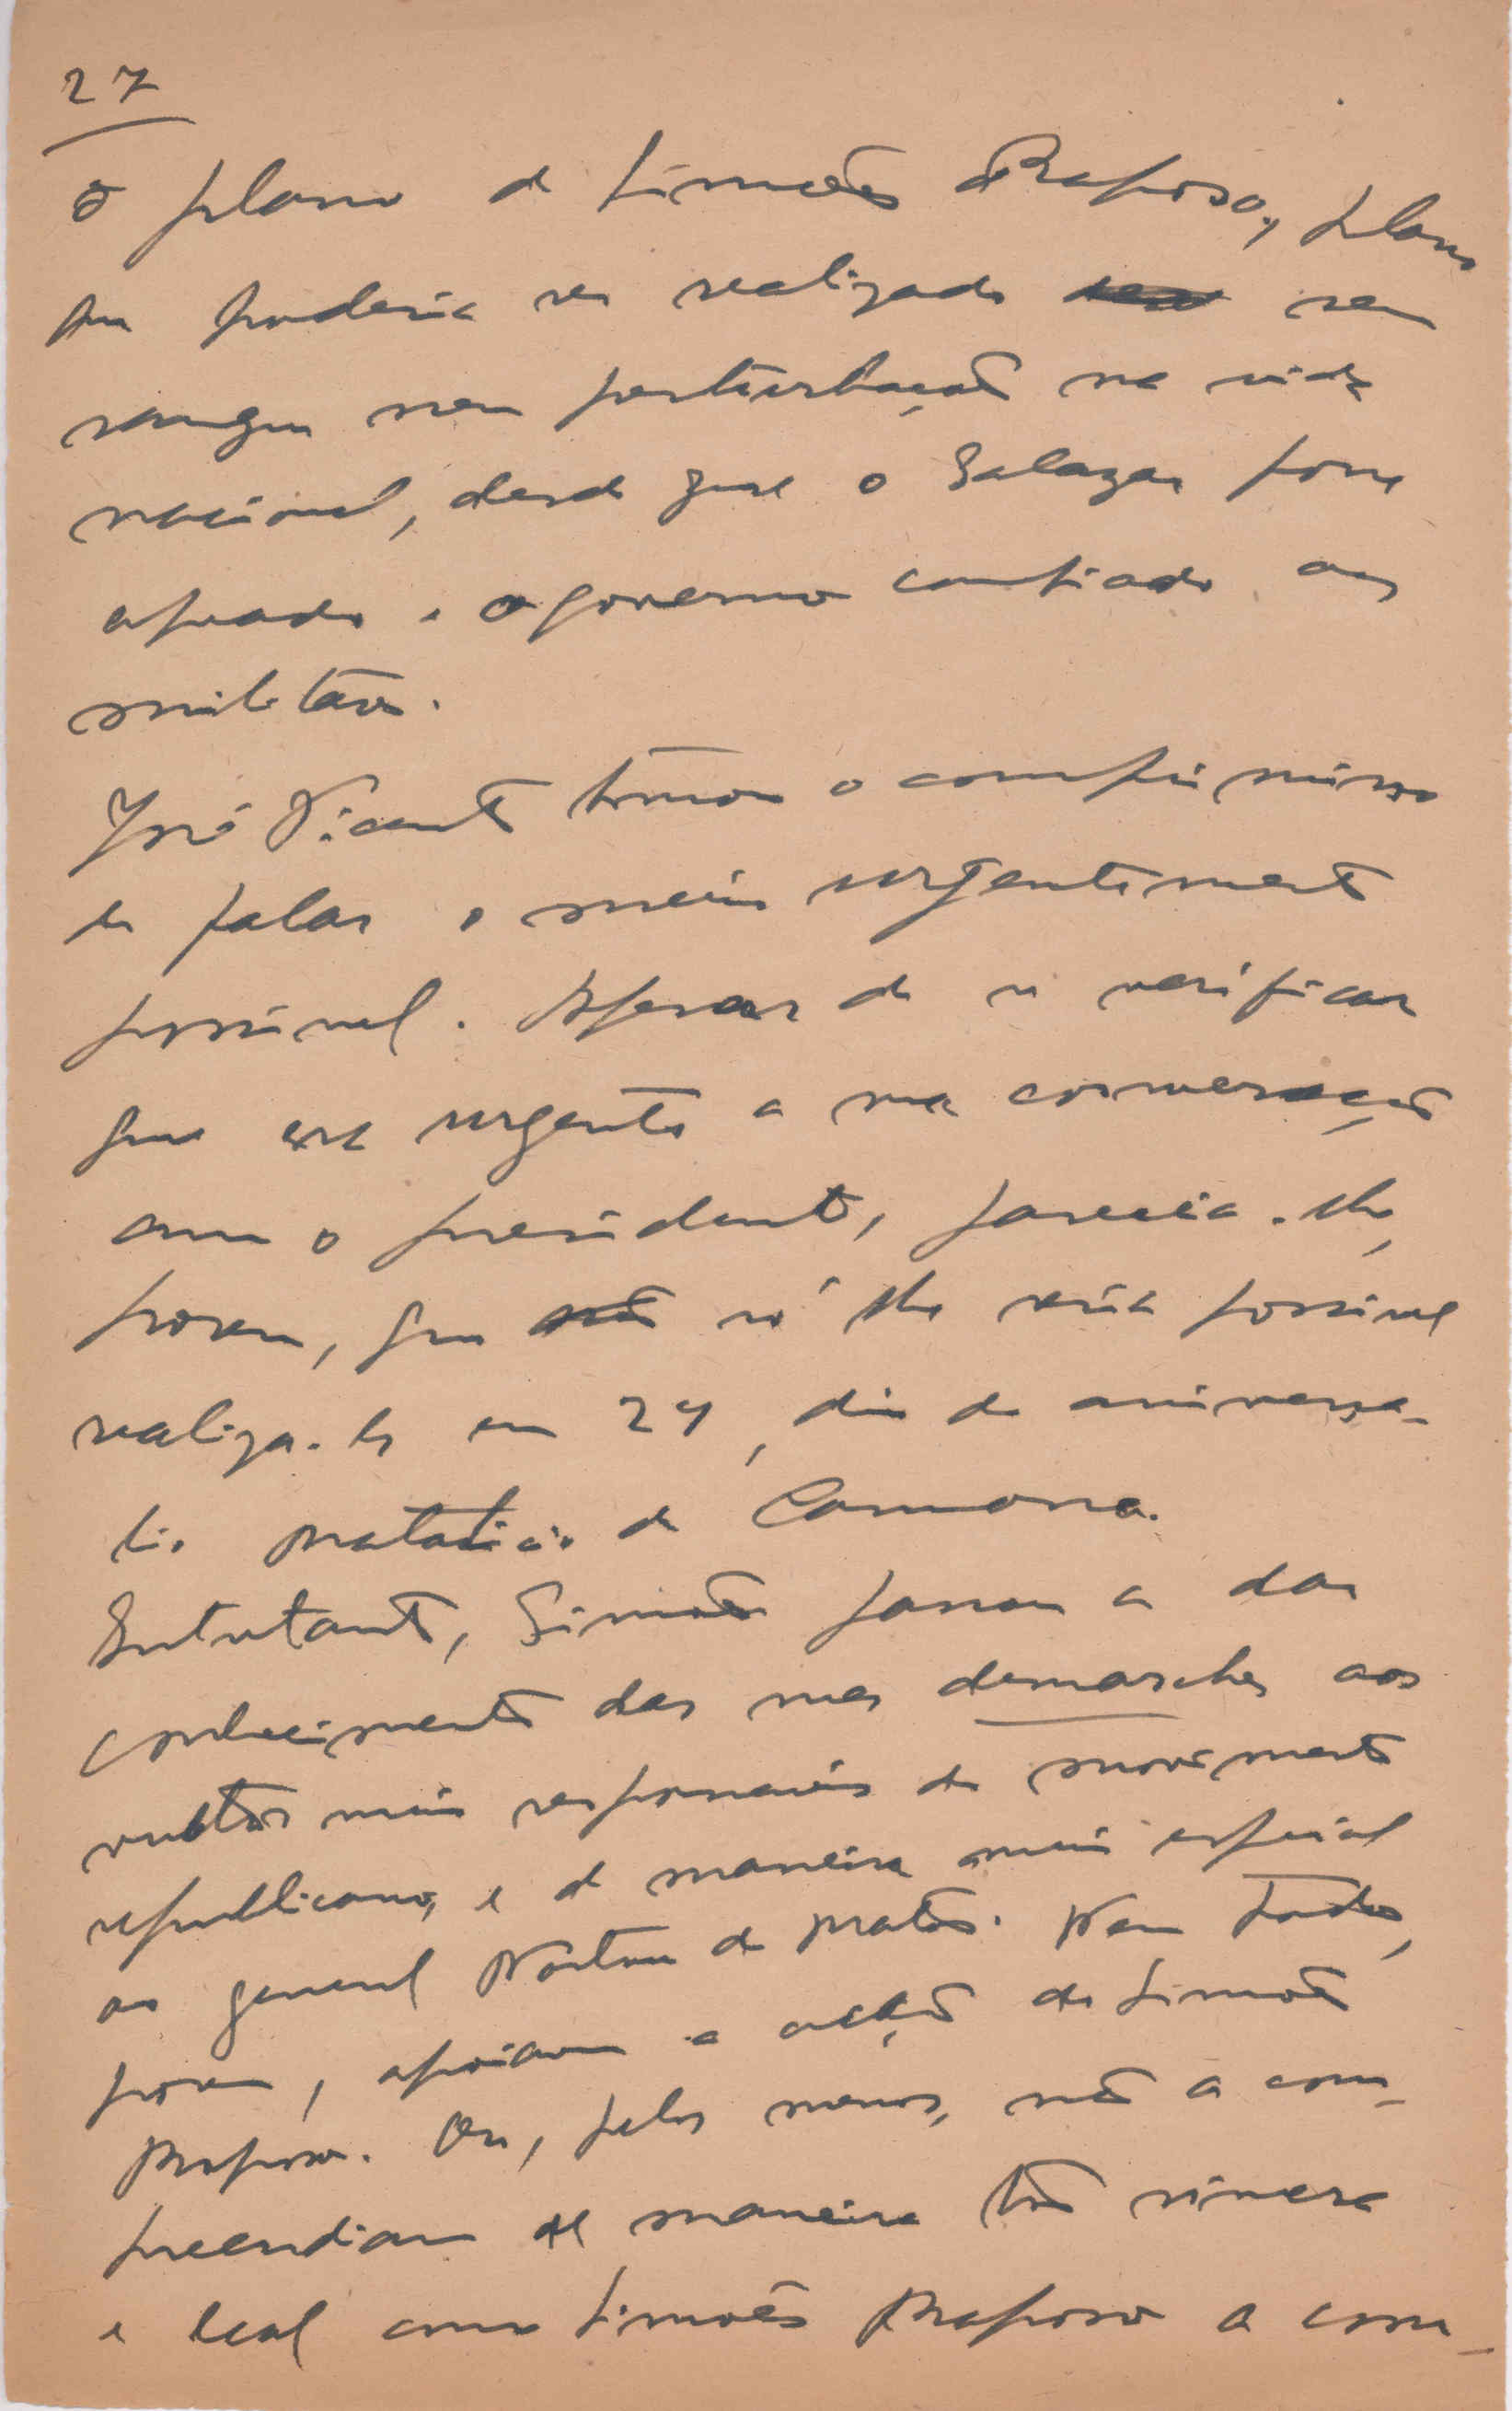 27
o plano de Simões Raposo, plano
que poderia ser realizado sem
sangue nem perturbação na vida
nacional, desde que o Salazar fosse
apeado e o governo confiado aos
militares.
José Vicente tomou o compromisso
de falar o mais urgentemente
possivel. Apesar de se verificar
que era urgente a sua conversação
com o presidente, parecia-lhe,
porem, que só lhe seria possivel
realiza-la em 24, dia de aniversa-
rio natalicio de Carmona.
Entretanto, Simões passou a dar
conhecimento das suas demarches aos
vultos mais responsaveis do movimento
republicano, e de maneira mais especial
ao general Norton de Matos. Nem todos,
porem, apoiavam a acção de Simões
Raposo. Ou, pelos menos, não a com-
preendiam de maneira tão sincera
e leal como Simões Raposo a com-